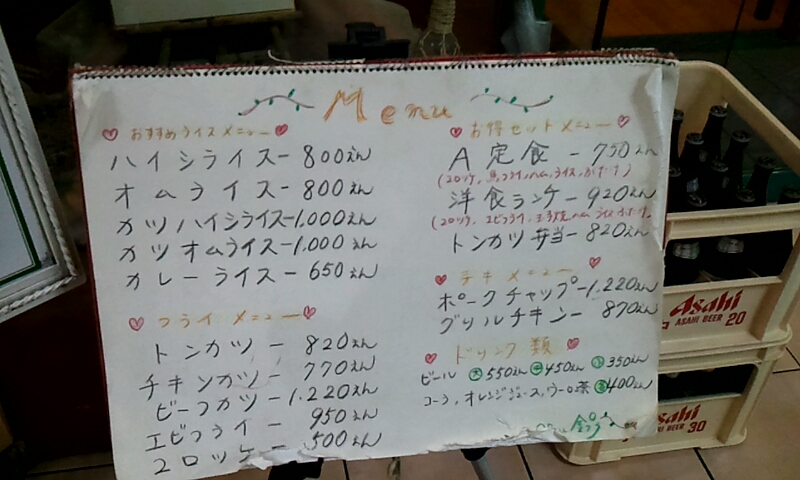 Menu
おすすめライスメニュー
ハイシライスー800えん
オムライスー800えん
カツハイシライスー1,000えん
カツオムライスー1,000えん
カレーライスー650えん
フライメニュー
トンカツー820えん
チキンカツー770えん
ビーフカツー1,220えん
エビフライー950えん
コロッケー500えん
お得セットメニュー
A定食ー750えん
(コロッケ、魚フライ、ハム、ライス、みそ汁)
洋食ランチー920えん
(コロッケ、エビフライ、玉子焼、ハム、ライス、みそ汁)
トンカツ弁当ー820えん
チキメニュー
ポークチャップー1,220えん
グリルチキンー870えん
ドリンク類
ビール 大550えん 中450えん 小350えん
コーラ、オレンジジュース、ウーロン茶 各400えん
鈴
Asahi
ASAHI BEER 20
Asahi
ASAHI BEER 30